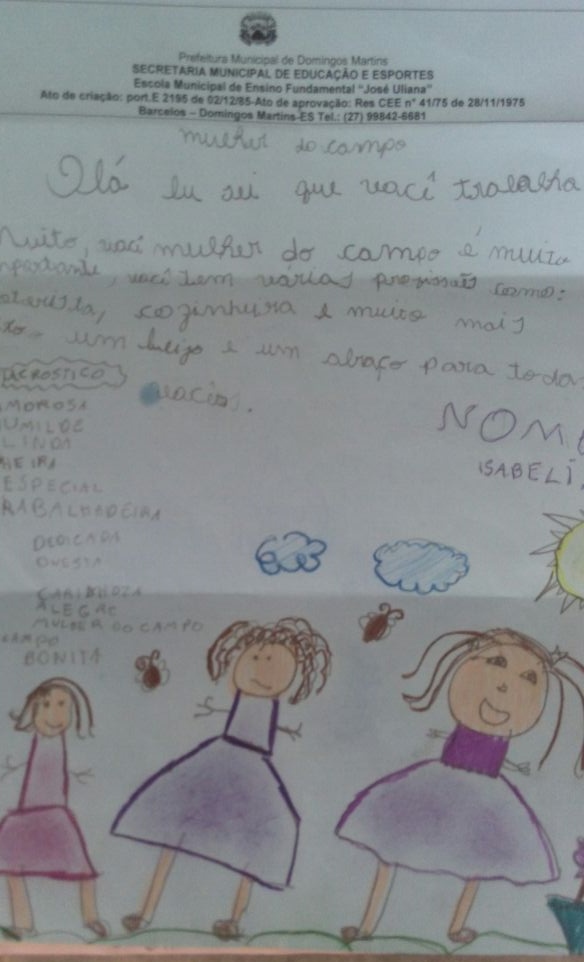 Prefeitura Municipal de Domingos Martins
SECRETARIA MUNICIPAL DE EDUCAÇÃO E ESPORTES
Escola Municipal de Ensino Fundamental "José Uliana"
Ato de criação: port.E 2195 de 02/12/85-Ato de aprovação: Res CEE n° 41/75 de 28/11/1975
Barcelos – Domingos Martins-ES Tel.: (27) 99842-6681
mulher do campo
Olá eu sei que você trabalha
Muito, você mulher do campo é muito
mportante, você tem várias profissões como:
cozinhura e muito mais
um beijo e um abraço para toda
vocês.
ACROSTICO
MOROSA
UMILDE
LINDA
HEIRA
ESPECIAL
RABALHADEIRA
DEDICADA
OVESTA
CARINHOZA
ALEGRE
MULHER DO CAMPO
CAMPO
BONITA
NOM
ISABELI